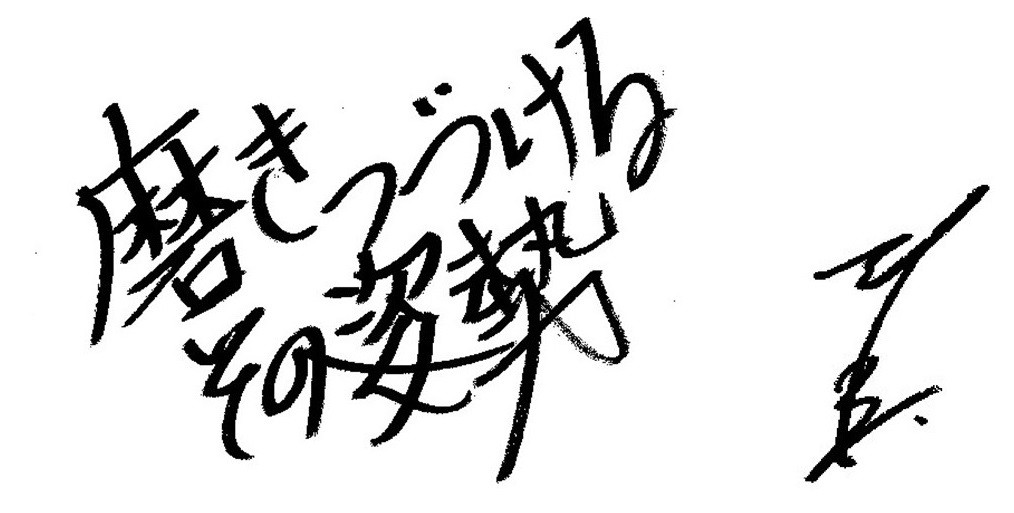 磨きつづける
その姿勢